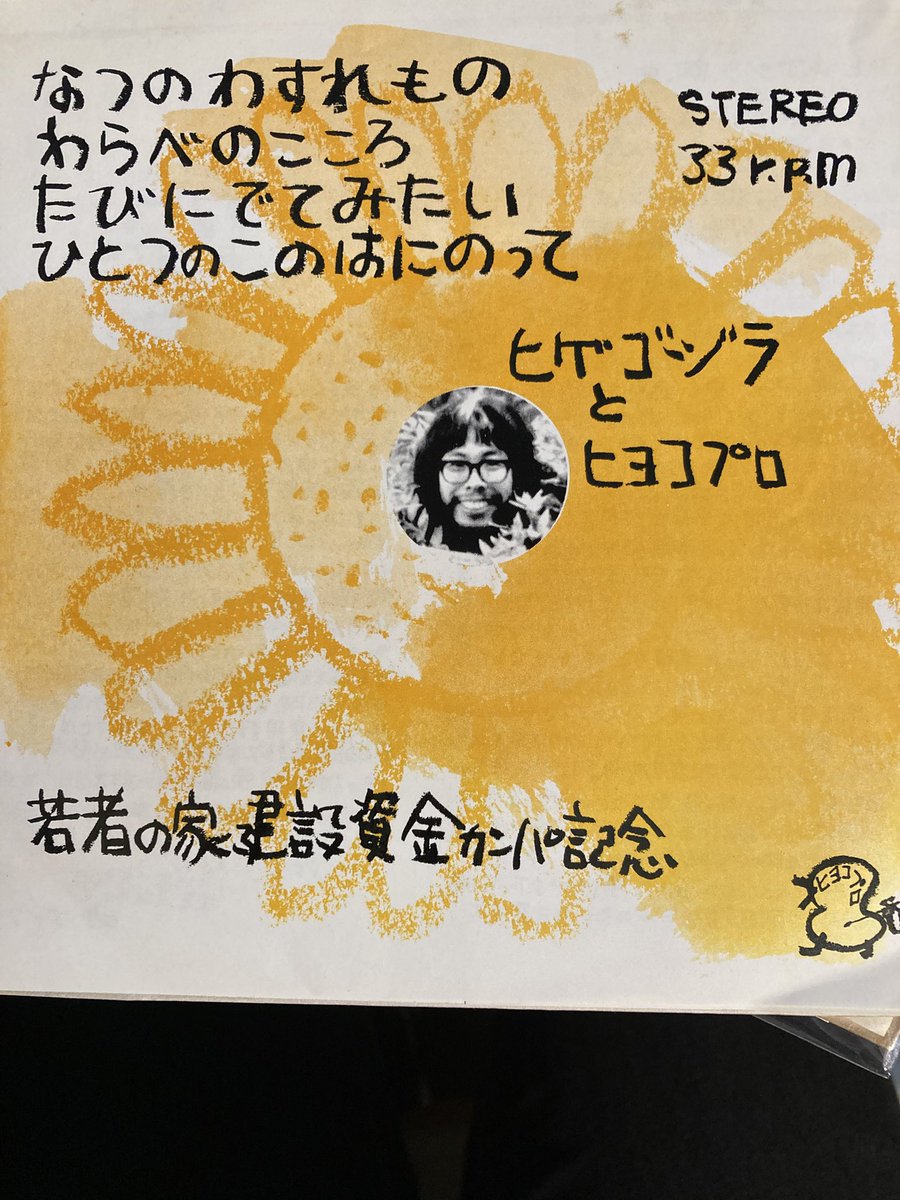 なつのわすれもの
わらべのこころ
たびにでてみたい
ひとつのこのはにのって
STEREO
33 r.p.m
ヒゲゴジラ
と
ヒヨコプロ
若者の家建設資金カンパ記念
ヒヨコプロ